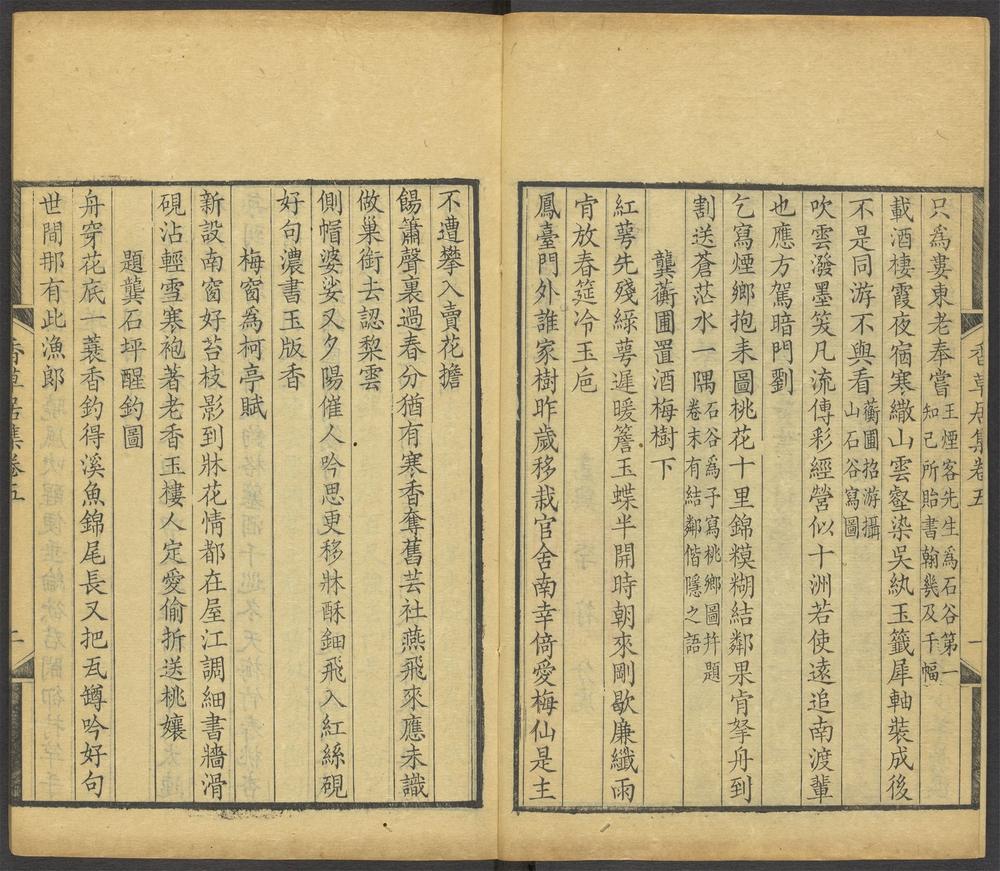 只爲婁東老奉嘗王煙客先生爲石谷第一
知己所貽書翰幾及千幅
載酒棲霞夜宿寒繖山雲壑染吳紈玉籤犀軸裝成後
不是同游不與看蘅圃招游攝
山石谷寫圖
吹雲潑墨笑凡流傳彩經營似十洲若使遠追南渡輩
也應方駕暗門劉
乞寫煙鄉抱耒圖桃花十里錦糢糊結鄰果肯拏舟到
割送蒼茫水一隅石谷爲予寫桃鄉圖幷題
卷末有結鄰偕隱之語
龔蘅圃置酒梅樹下
紅萼先殘綠萼遲暖簷玉蝶半開時朝來剛歇廉纖雨
肯放春筵冷玉卮
鳳臺門外誰家樹昨歲移栽官舍南幸倚愛梅仙是主
香草居集卷五
一
不遭攀入賣花擔
餳簫聲裏過春分猶有寒香奪舊芸社燕飛來應未識
做巢銜去認梨雲
側帽婆娑又夕陽催人吟思更移牀酥鈿飛入紅絲硯
好句濃書玉版香
梅窗爲柯亭賦
新設南窗好苔枝影到牀花情都在屋江調細書牆滑
硯沾輕雪寒袍著老香玉樓人定愛偷折送桃孃
題龔石坪醒釣圖
舟穿花底一蓑香釣得溪魚錦尾長又把瓦罇吟好句
世間那有此漁郎
香草居集卷五
二